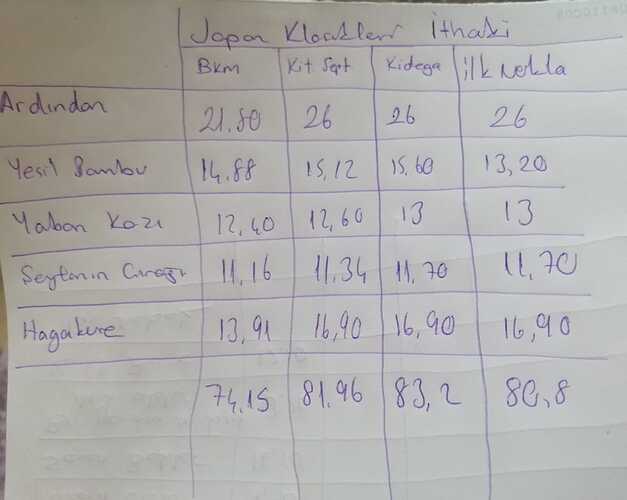 Japon Klasikleri İthaki
Bkm Kit. Sept Kidega ilk Nokta
Ardından 21.80 26 26 26
Yesil Bambu 14.88 15,12 15.60 13,20
Yaban Kazı 12,40 12,60 13 13
Seytanın Cırağı 11,16 11,34 11,70 11,70
Hagakure 13,91 16,90 16,90 16,90
74,15 81.96 83,2 80,8